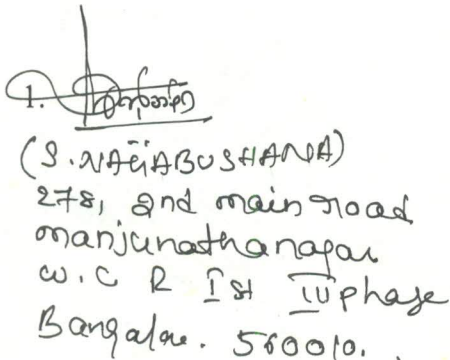 1.
(S. NAGABUSHANA)
278, 2nd main road
manjunathanagar
W. C R Ist IV phase
Bangalore. 560010.